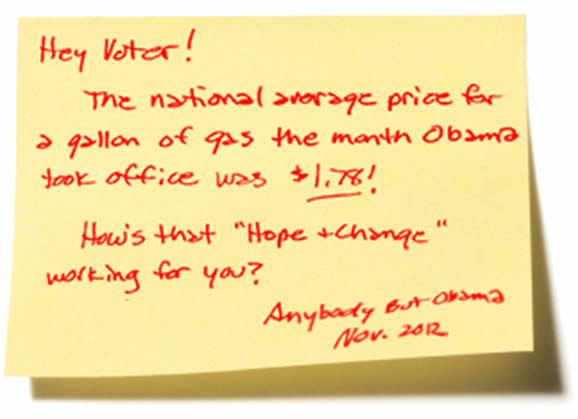 Hey Voter!
The national average price for
a gallon of gas the month Obama
took office was $1.78!
How's that "Hope + Change"
working for you?
Anybody But Obama
Nov. 2012